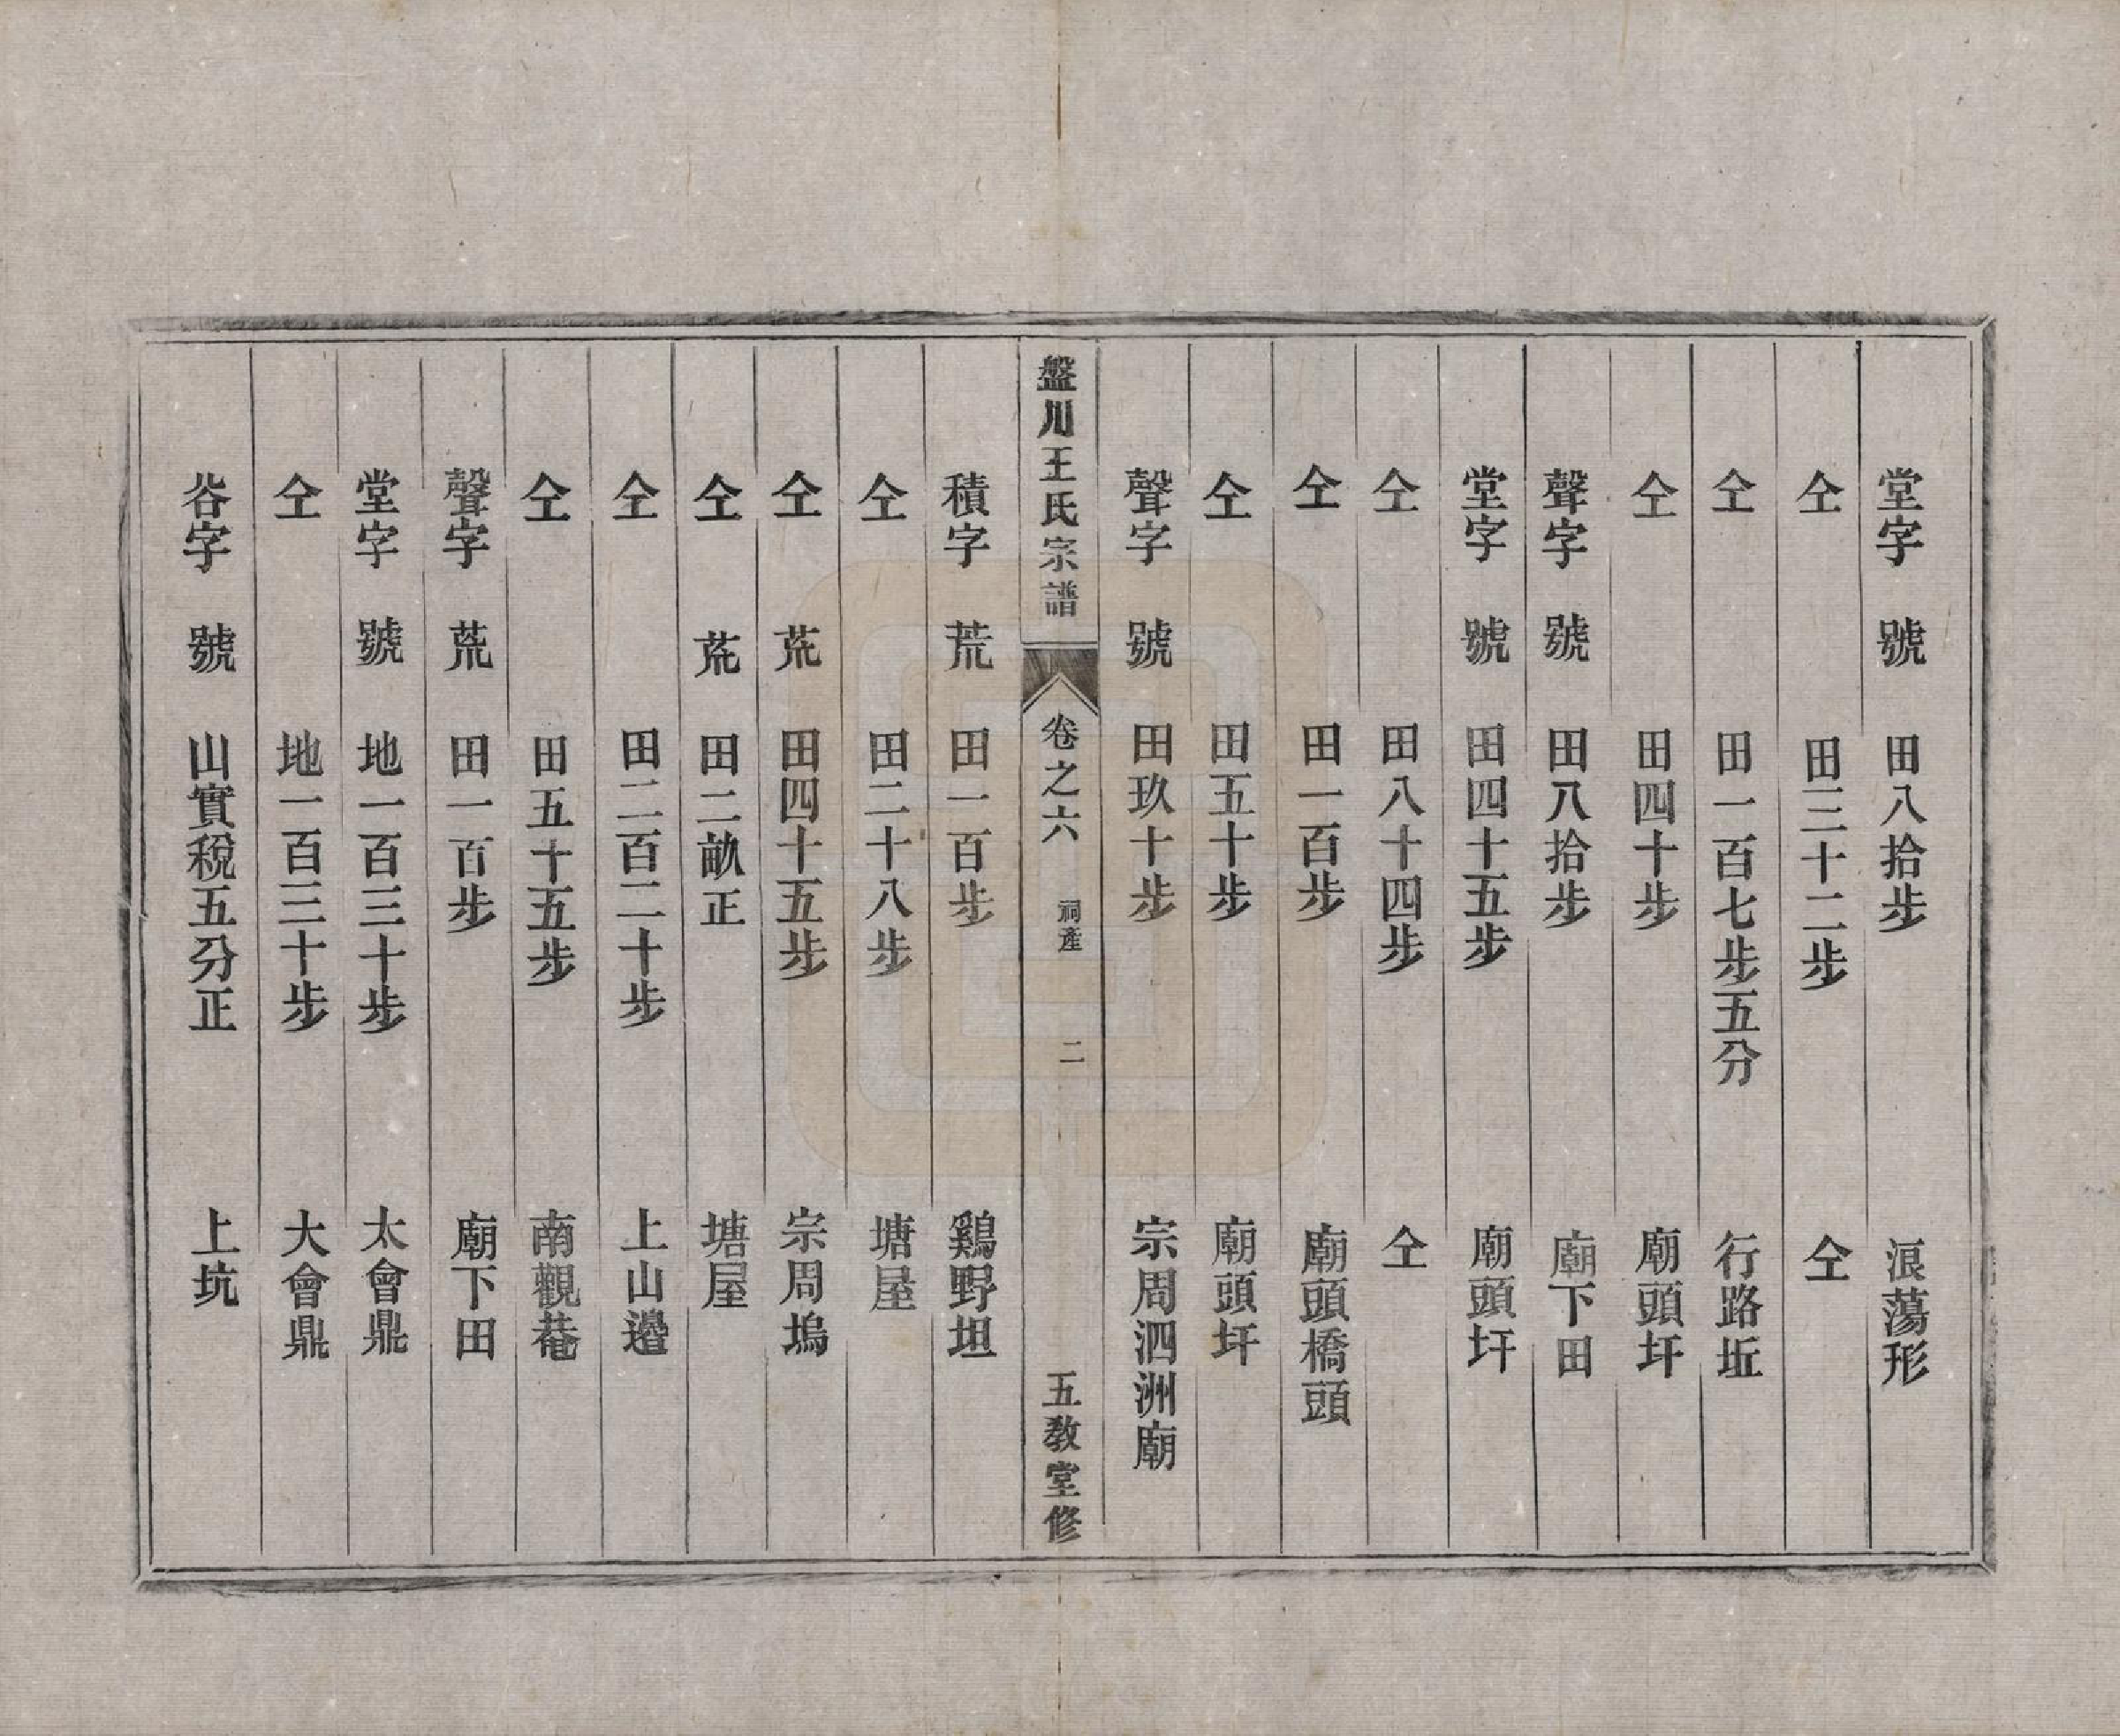 堂字　號　田八拾步　浪蕩形
仝　田三十二步　仝
仝　田一百七步五分　行路坵
仝　田四十步　廟頭圩
聲字　號　田八拾步　廟下田
堂字　號　田四十五步　廟頭圩
仝　田八十四步　仝
仝　田一百步　廟頭橋頭
仝　田五十步　廟頭圩
聲字　號　田玖十步　宗周泗洲廟
盤川王氏宗譜　卷之六　祠產　二　五教堂修
積字　荒　田一百步　鷄野坦
仝　田二十八步　塘屋
仝　荒　田四十五步　宗周塢
仝　荒　田二畝正　塘屋
仝　田二百二十步　上山邊
仝　田五十五步　南觀菴
聲字　荒　田一百步　廟下田
堂字　號　地一百三十步　太會鼎
仝　地一百三十步　大會鼎
谷字　號　山實稅五分正　上坑